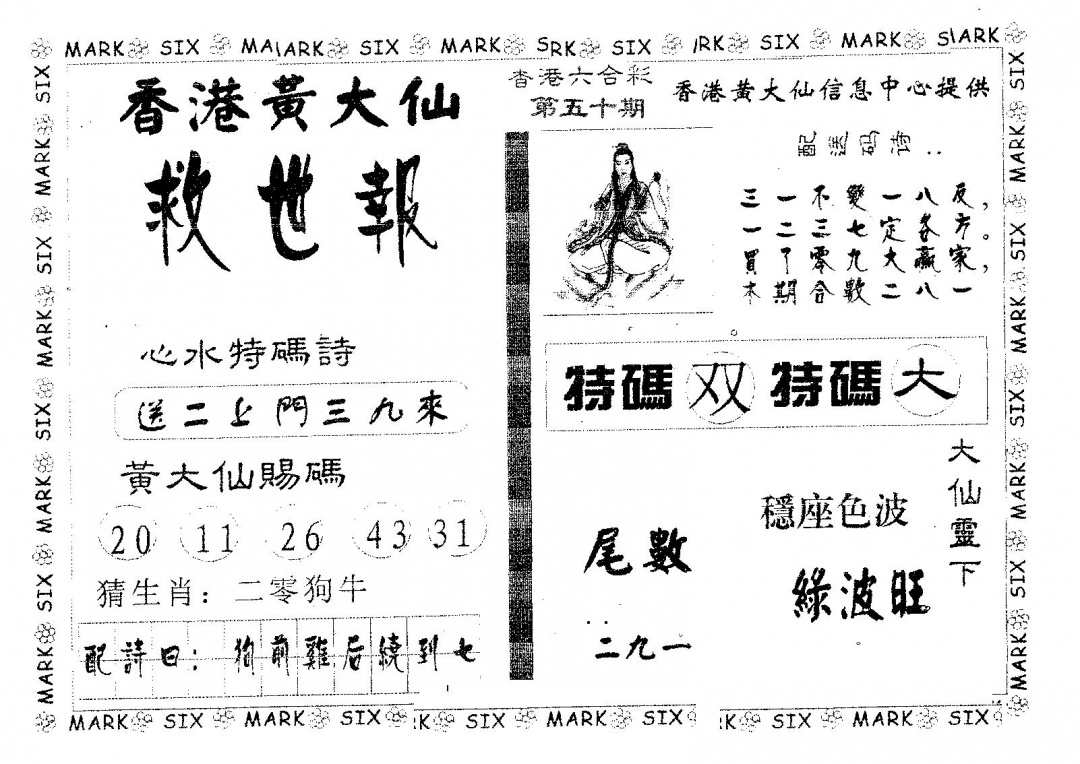 MARK SIX MARK SIX MARK SIX MARK SIX MARK SIX
香港黃大仙
救世報
香港六合彩
第五十期
香港黃大仙信息中心提供
配送码诗:
三一不變一八反,
一二三七定各方。
買丁零九大贏家,
本期合數二八一
心水特碼詩
送二上門三九來
特碼双 特碼大
黃大仙賜碼
20 11 26 43 31
猜生肖：二零狗牛
配詩曰：狗前雞后繞到七
尾數:
二九一
穩座色波
綠波旺
大仙靈下
MARK SIX MARK SIX MARK SIX MARK SIX MARK SIX